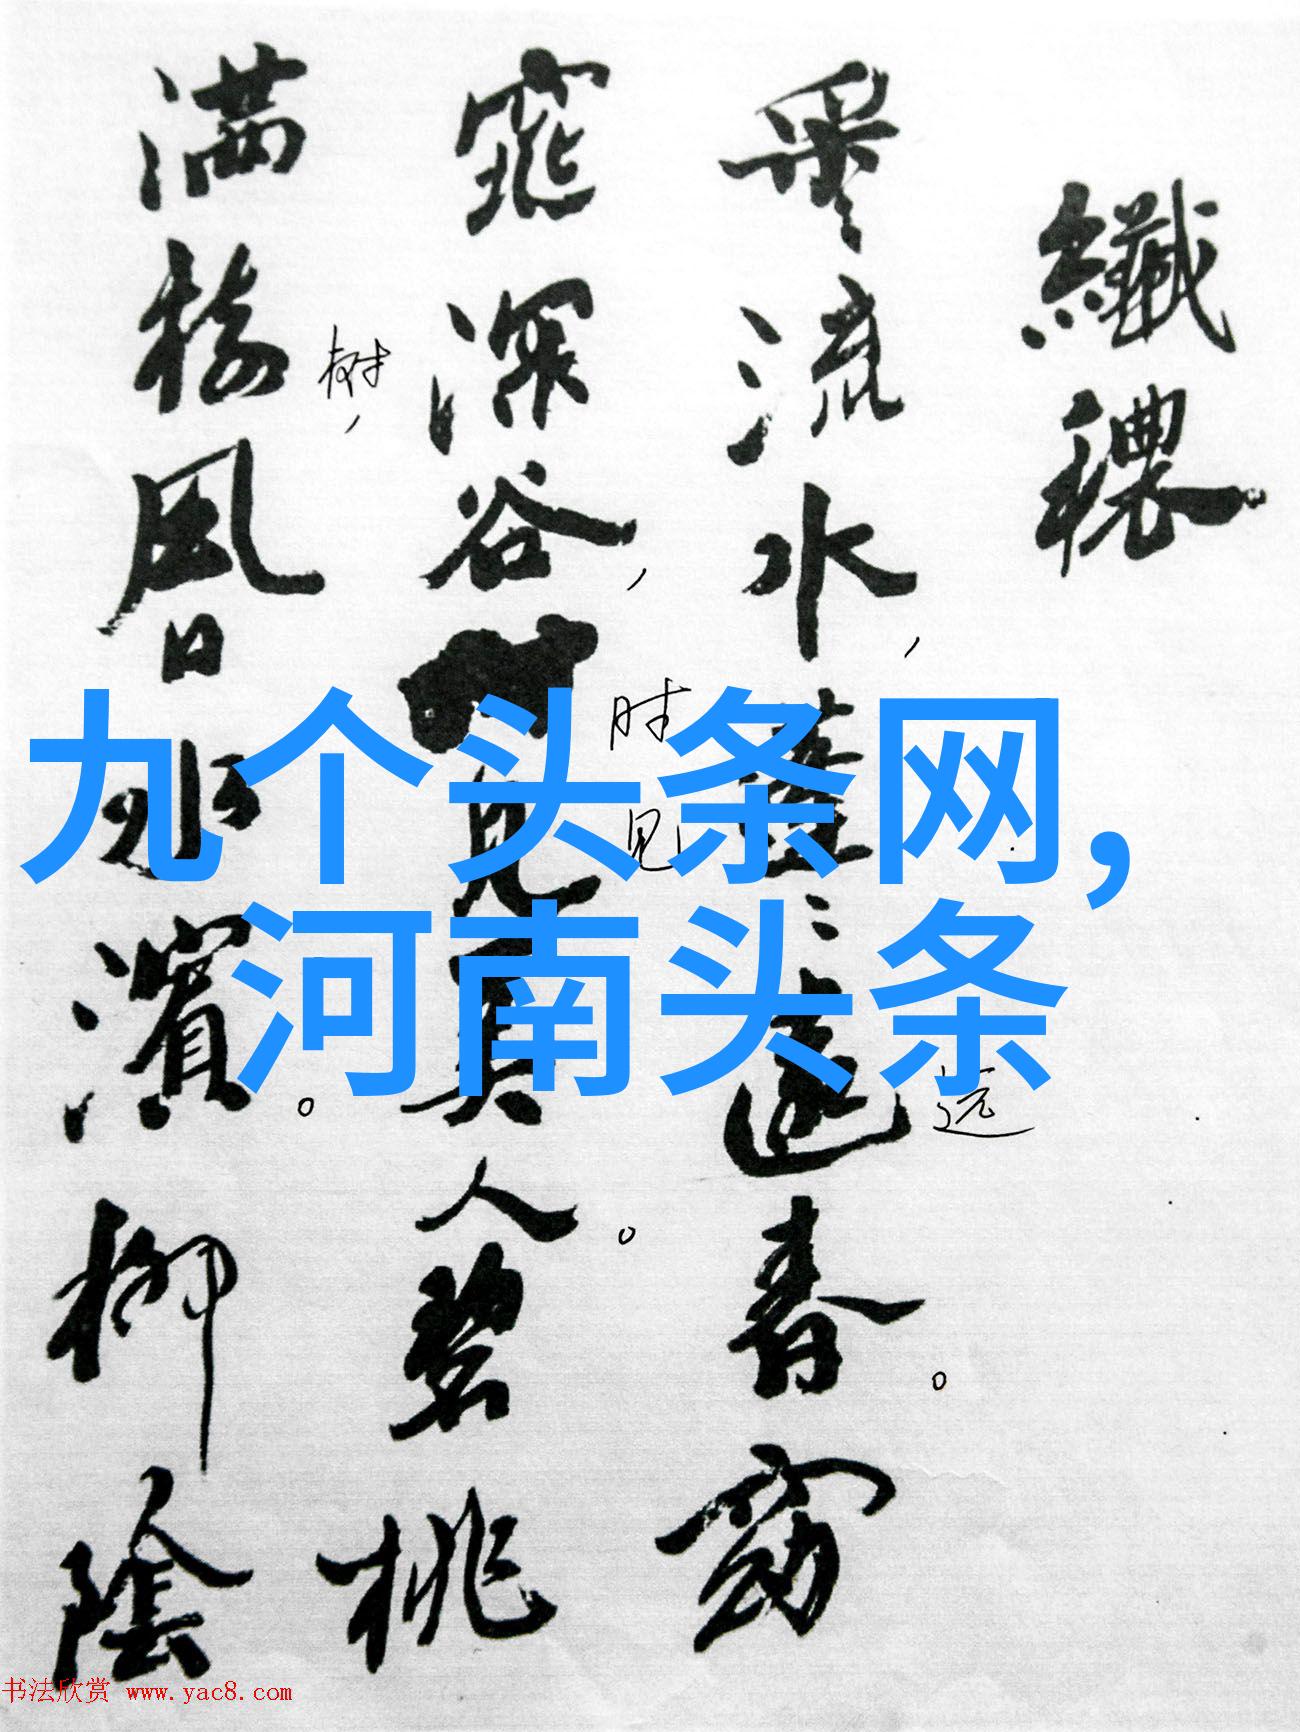 纖穠
采流水，蓬
遠春。窈
远
窕深谷，
見美人。碧桃
时
见
满樹風日水濱。柳陰
树，
九个头条网，
河南头条
书法欣赏 www.yac8.com